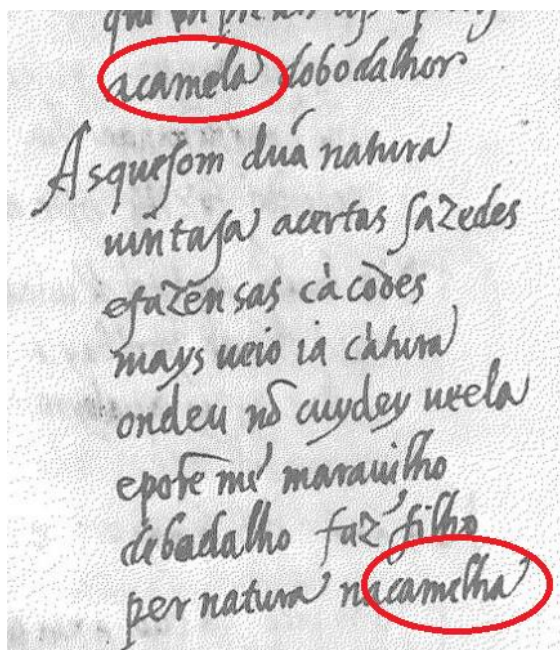 acamela dobodalhor
Asquesom duã natura
acertas fazedes
efazen sas cà codes
mays ueio ia càtura
ondeu nõ cuydey ueela
epore marauilho
debadalho faz filho
per natura nacamelha